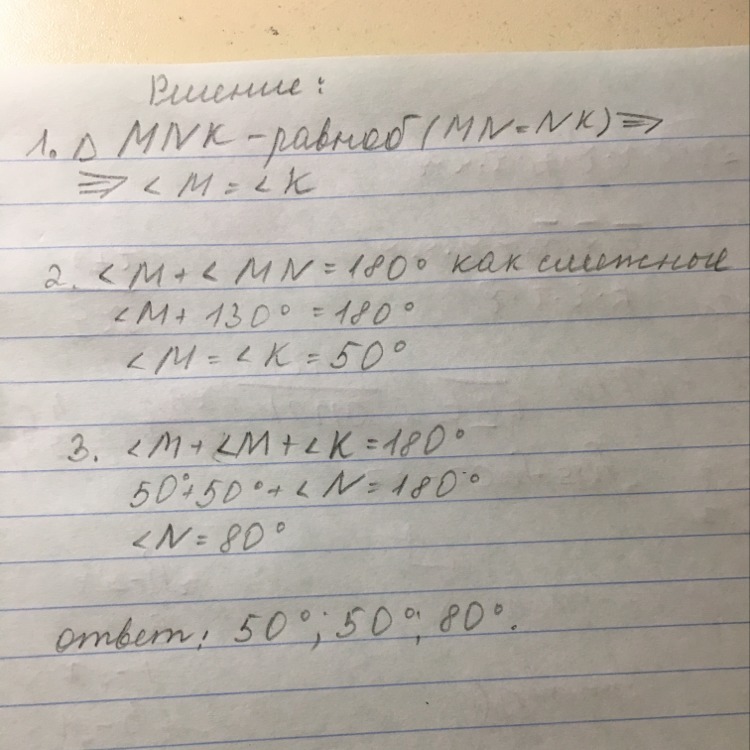 Решение:
1. △ MNK - равноб (MN = NK) ⇒
⇒ ∠M = ∠K
2. ∠M + ∠MN = 180° как смежные
∠M + 130° = 180°
∠M = ∠K = 50°
3. ∠M + ∠M + ∠K = 180°
50° + 50° + ∠N = 180°
∠N = 80°
ответ: 50°; 50°; 80°.